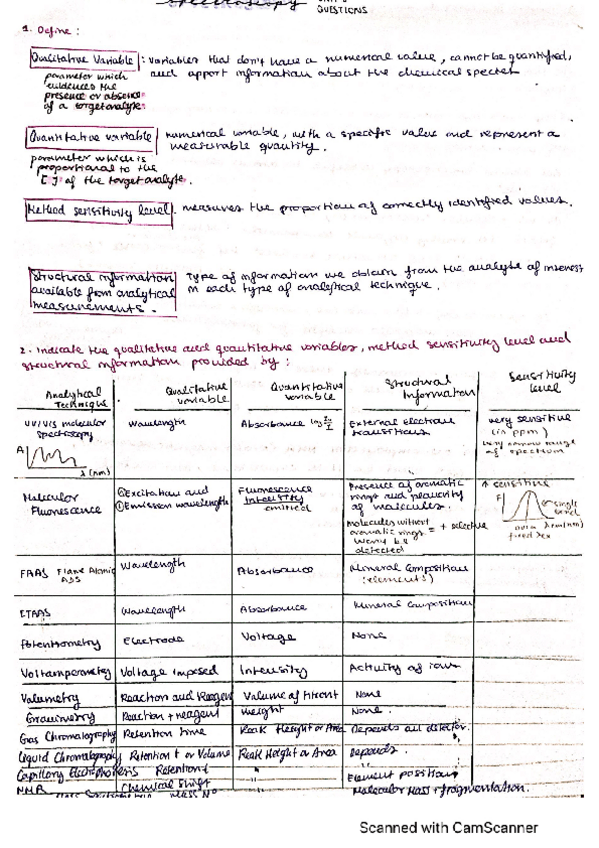 Spectroscopy
QUESTIONS
1. Define :
Qualitative Variable : variables that don't have a numerical value, cannot be quantified,
and apport information about the chemical species
parameter which
evidences the
presence or absence
of a target analyte.
Quantitative variable numerical variable, with a specific value and represent a
measurable quantity.
parameter which is
proportional to the
[ ] of the target analyte.
Method sensitivity level . measures the proportion of correctly identified values.
Structural information Type of information we obtain from the analyte of interest
available from analytical in each type of analytical technique.
measurements.
2. Indicate the qualitative and quantitative variables, method sensitivity level and
structural information provided by :
Analytical Technique Qualitative variable Quantitative variable Structural Information Sensitivity level
UV/VIS molecular spectroscopy Wavelength Absorbance External electron transitions very sensitive
(in ppm)
very narrow range
of spectrum
A
λ (nm)
Molecular Fluorescence Excitation and Emission wavelength Fluorescence Intensity emitted Presence of aromatic
rings and planarity
of molecules.
molecules without
aromatic rings = + selective
detected
↑ sensitive
F
single
band
fixed λex
FAAS Flame Atomic ABS Wavelength Absorbance Mineral Composition
(elements)
ETAAS Wavelength Absorbance Mineral Composition
Potentiometry electrode Voltage None
Voltamperometry Voltage imposed Intensity Activity of ions
Volumetry Reaction and Reagent Volume of titrant None
Gravimetry Reaction + reagent Weight None.
Gas Chromatography Retention time Peak Height or Area Depends on detector.
Liquid Chromatography Retention t or Volume Peak Height or Area Depends.
Capillary Electrophoresis Retention t "
NMR Chemical shift " Element position
Mass N° Molecular Mass + fragmentation.
Scanned with CamScanner